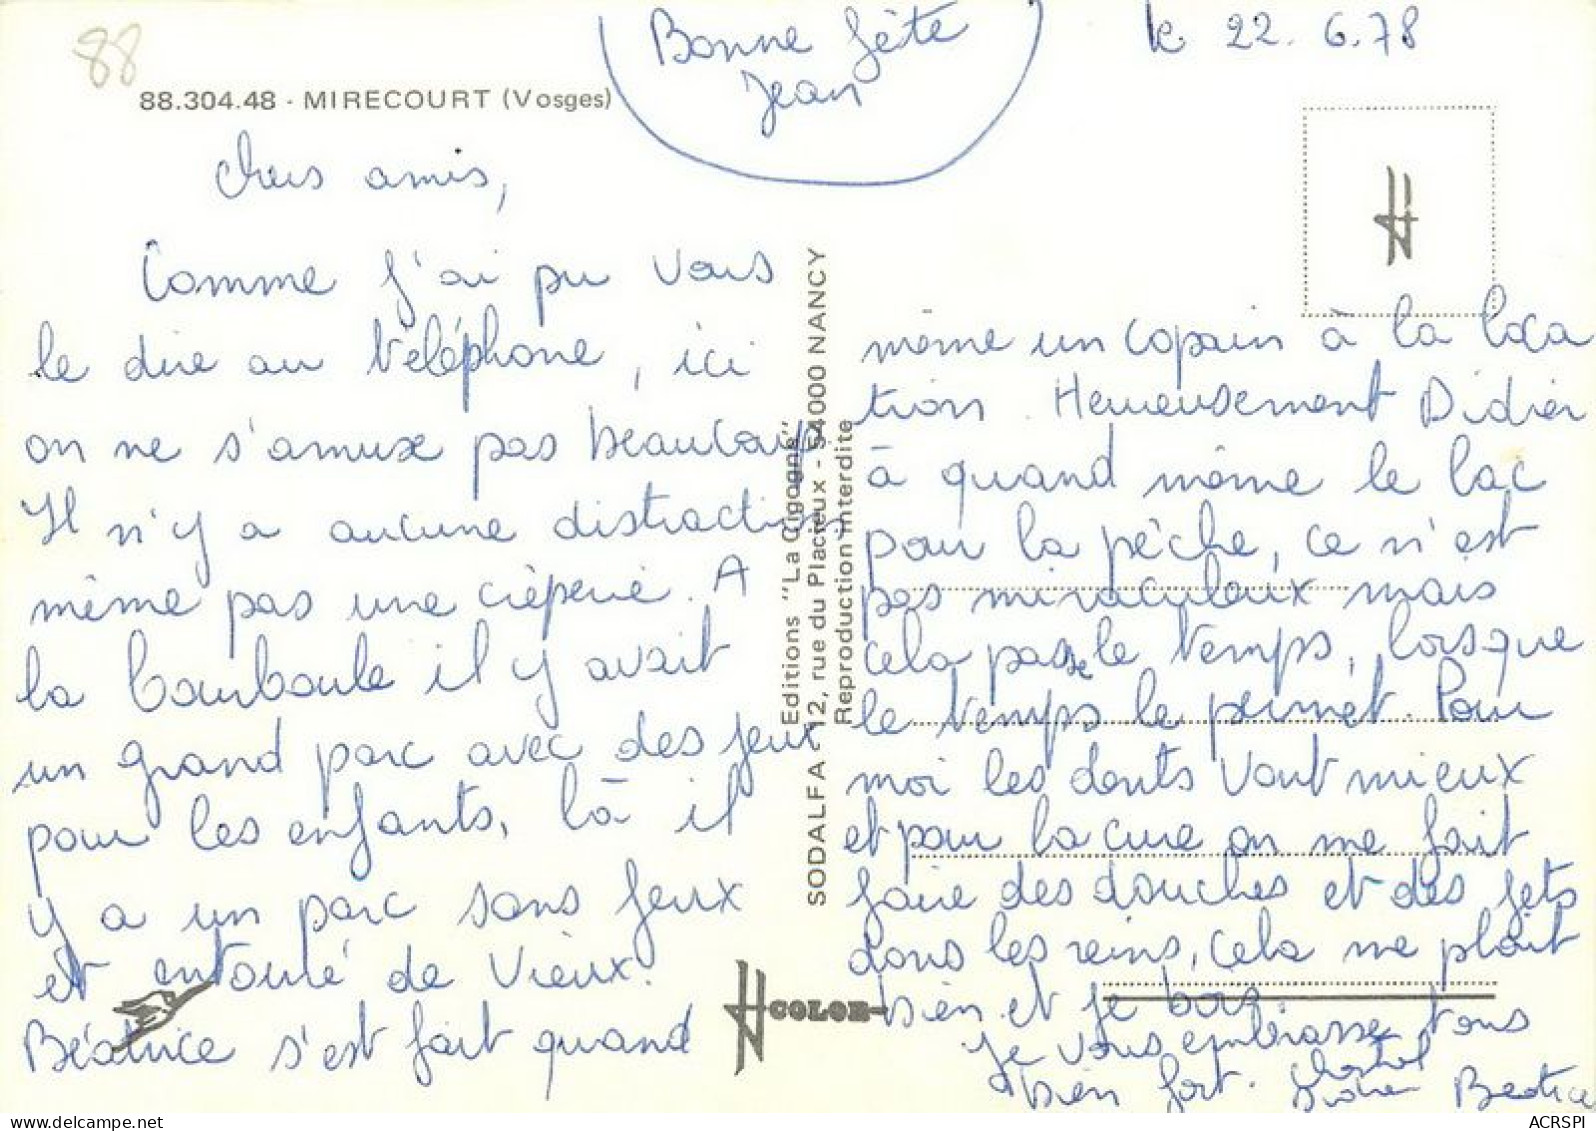 88
88.304.48 - MIRECOURT (Vosges)
Bonne fête
Jean
le 22.6.78
Chers amis,
Comme j'ai pu vous
le dire au téléphone, ici
on ne s'amuse pas beaucoup
Il n'y a aucune distraction
même pas une crèperie. A
la bourboule il y avait
un grand parc avec des jeux
pour les enfants, là il
y a un parc sans jeux
et entouré de vieux.
Béatrice s'est fait quand
même un copain à la loca
tion. Heureusement Didier
à quand même le lac
pour la pêche, ce n'est
pas miraculeux mais
cela passe le temps, lorsque
le temps le permet. Pour
moi les dents vont mieux
et pour la cure on me fait
faire des douches et des jets
dans les reins, cela me plait
bien et je bois
Je vous embrasse tous
bien fort. Chantal
Didier Béatrice
Editions "La Cigogne"
SODALFA - 12, rue du Placieux - 54000 NANCY
Reproduction interdite
COLOR
ACRSPI